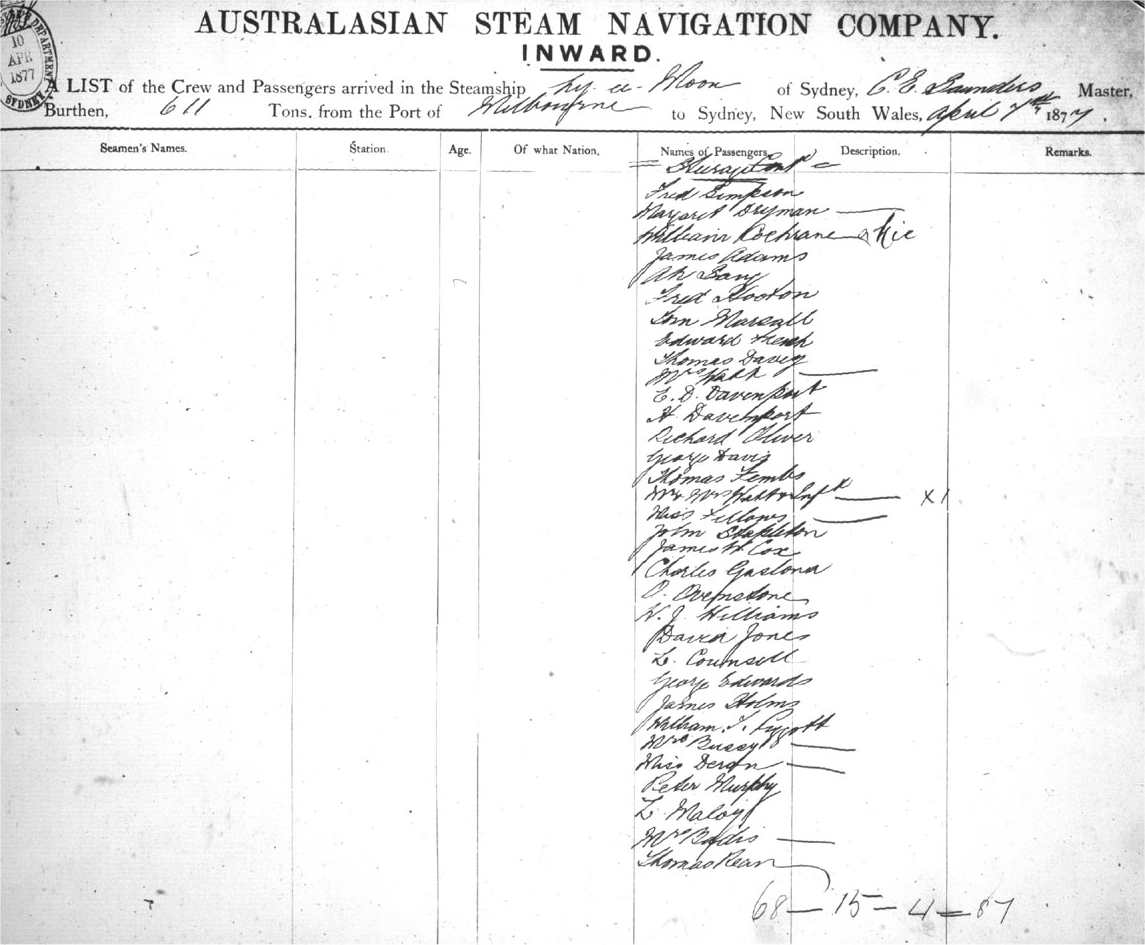 10
APR
1877
SYDNEY
DEPARTMENT
AUSTRALASIAN STEAM NAVIGATION COMPANY.
INWARD.
A LIST of the Crew and Passengers arrived in the Steamship Ly-ee-Moon of Sydney, C. E. Saunders Master,
Burthen, 611 Tons, from the Port of Melbourne to Sydney, New South Wales, April 7th 1877.
Seamen's Names. Station. Age. Of what Nation, Names of Passengers. Description. Remarks.
Fred Simpson
Margaret Dryman
William Cochrane
James Adams
Ah
Fred Hooton
Tom Marsall
Edward French
Thomas Davey
Mrs
E. D. Davenport
H Davenport
Richard Oliver
George Davis
Thomas
Mr Mrs
Miss Fellows
John Stapleton
James W Cox
Charles
O. Ovenstone
W. J. Williams
David Jones
L. Counsell
George Edwards
James Holms
William
Mrs Bussey
Miss
Peter Murphy
L Maloy
Mrs
Thomas
68 - 15 - 4 = 87